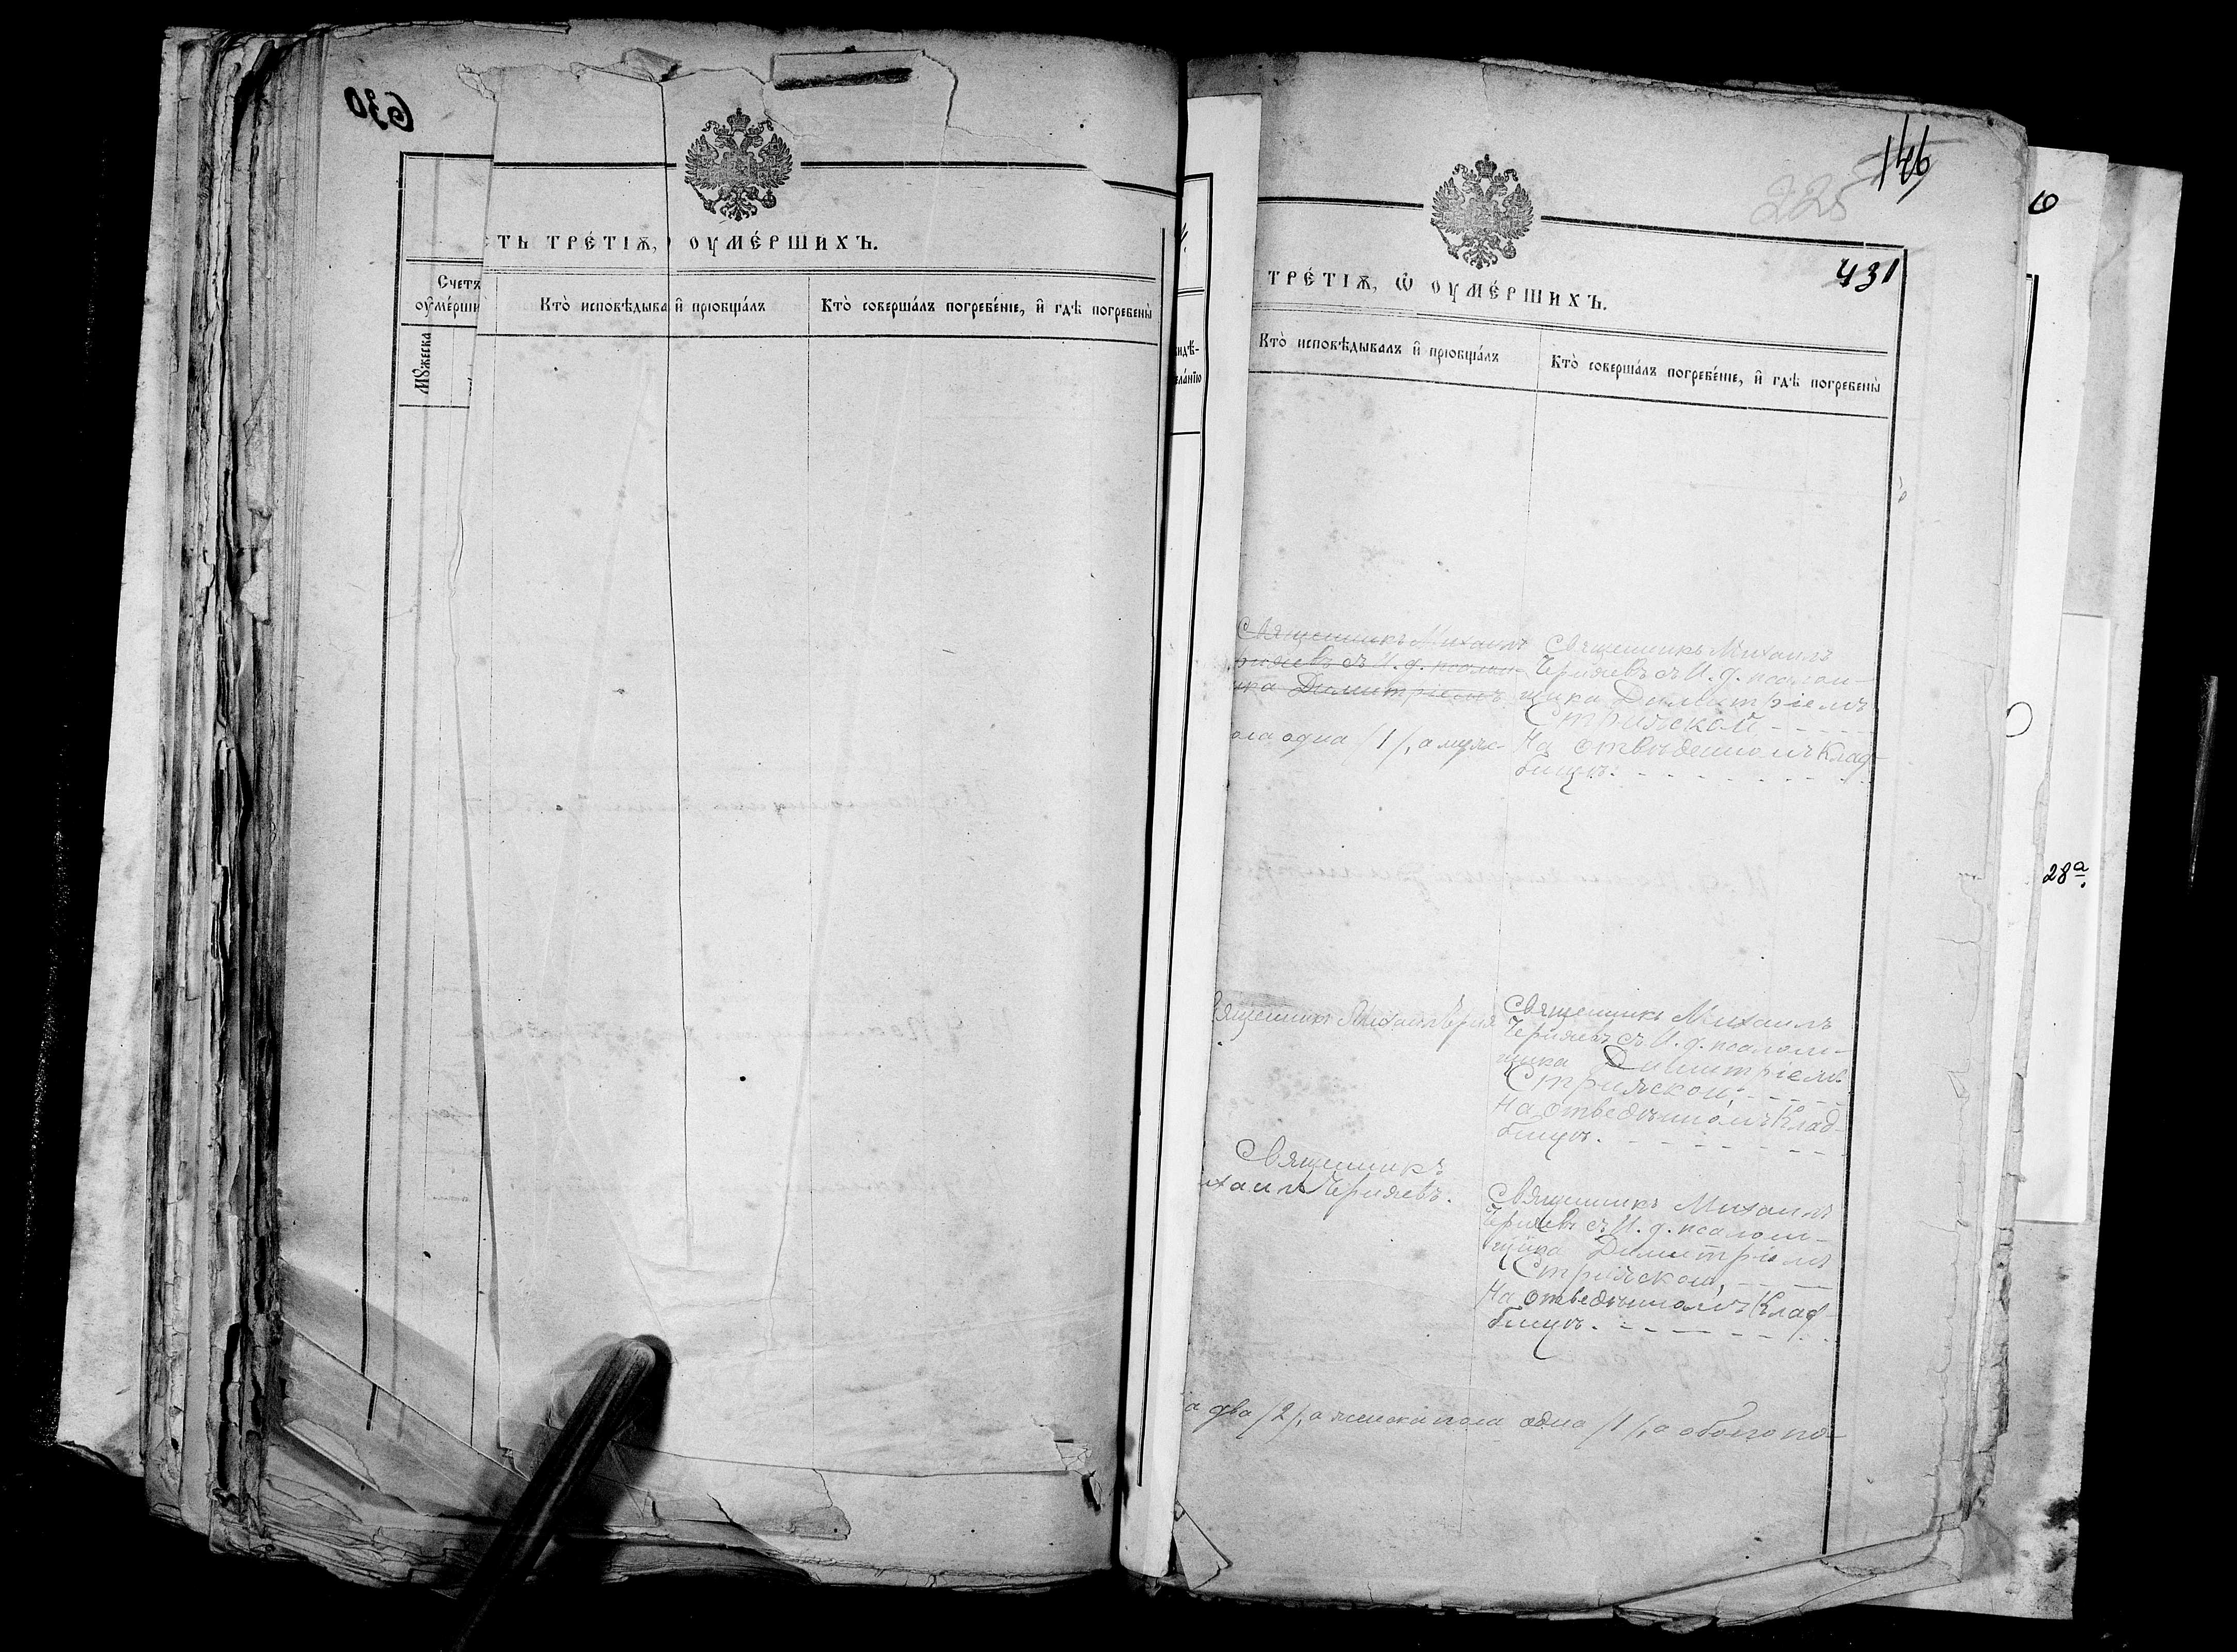 630
ТЬ ТРЕ́ТІѦ, ОУМЕ́РШИХЪ.
Счетъ
оумерши
Мꙋжеска
Кто̀ исповѣдыва й прїобща́лъ
Кто̀ соверша́лъ погребе́нїе, й гдѣ̀ погребены̀
146
225
431
ТРЕ́ТІѦ, Ѡ ОУМЕ́РШИХЪ.
видѣ-
ела́нїю
Кто̀ исповѣдывалъ й прїобща́лъ
Кто̀ соверша́лъ погребе́нїе, й гдѣ̀ погребены̀
Священникъ Михаилъ
съ И. д. псалом-
ика Димитріемъ
ола одна /1/, а муж-
Священникъ Михаилъ
Черняевъ съ И. д. псалом-
щика Димитріемъ
Стрижской
На отведенномъ Клад-
бищѣ.
Священникъ Михаилъ
Черняевъ съ И. д. псалом-
щика Димитріемъ
Стрижской,
На отведенномъ Клад-
бищѣ.
Священникъ
ихаилъ Черняевъ.
Священникъ Михаилъ
Черняевъ съ И. д. псалом-
щика Димитріемъ
Стрижской,
На отведенномъ Клад-
бищѣ.
а два /2/, а женска пола одна /1/, а обоего по-
6
28а.